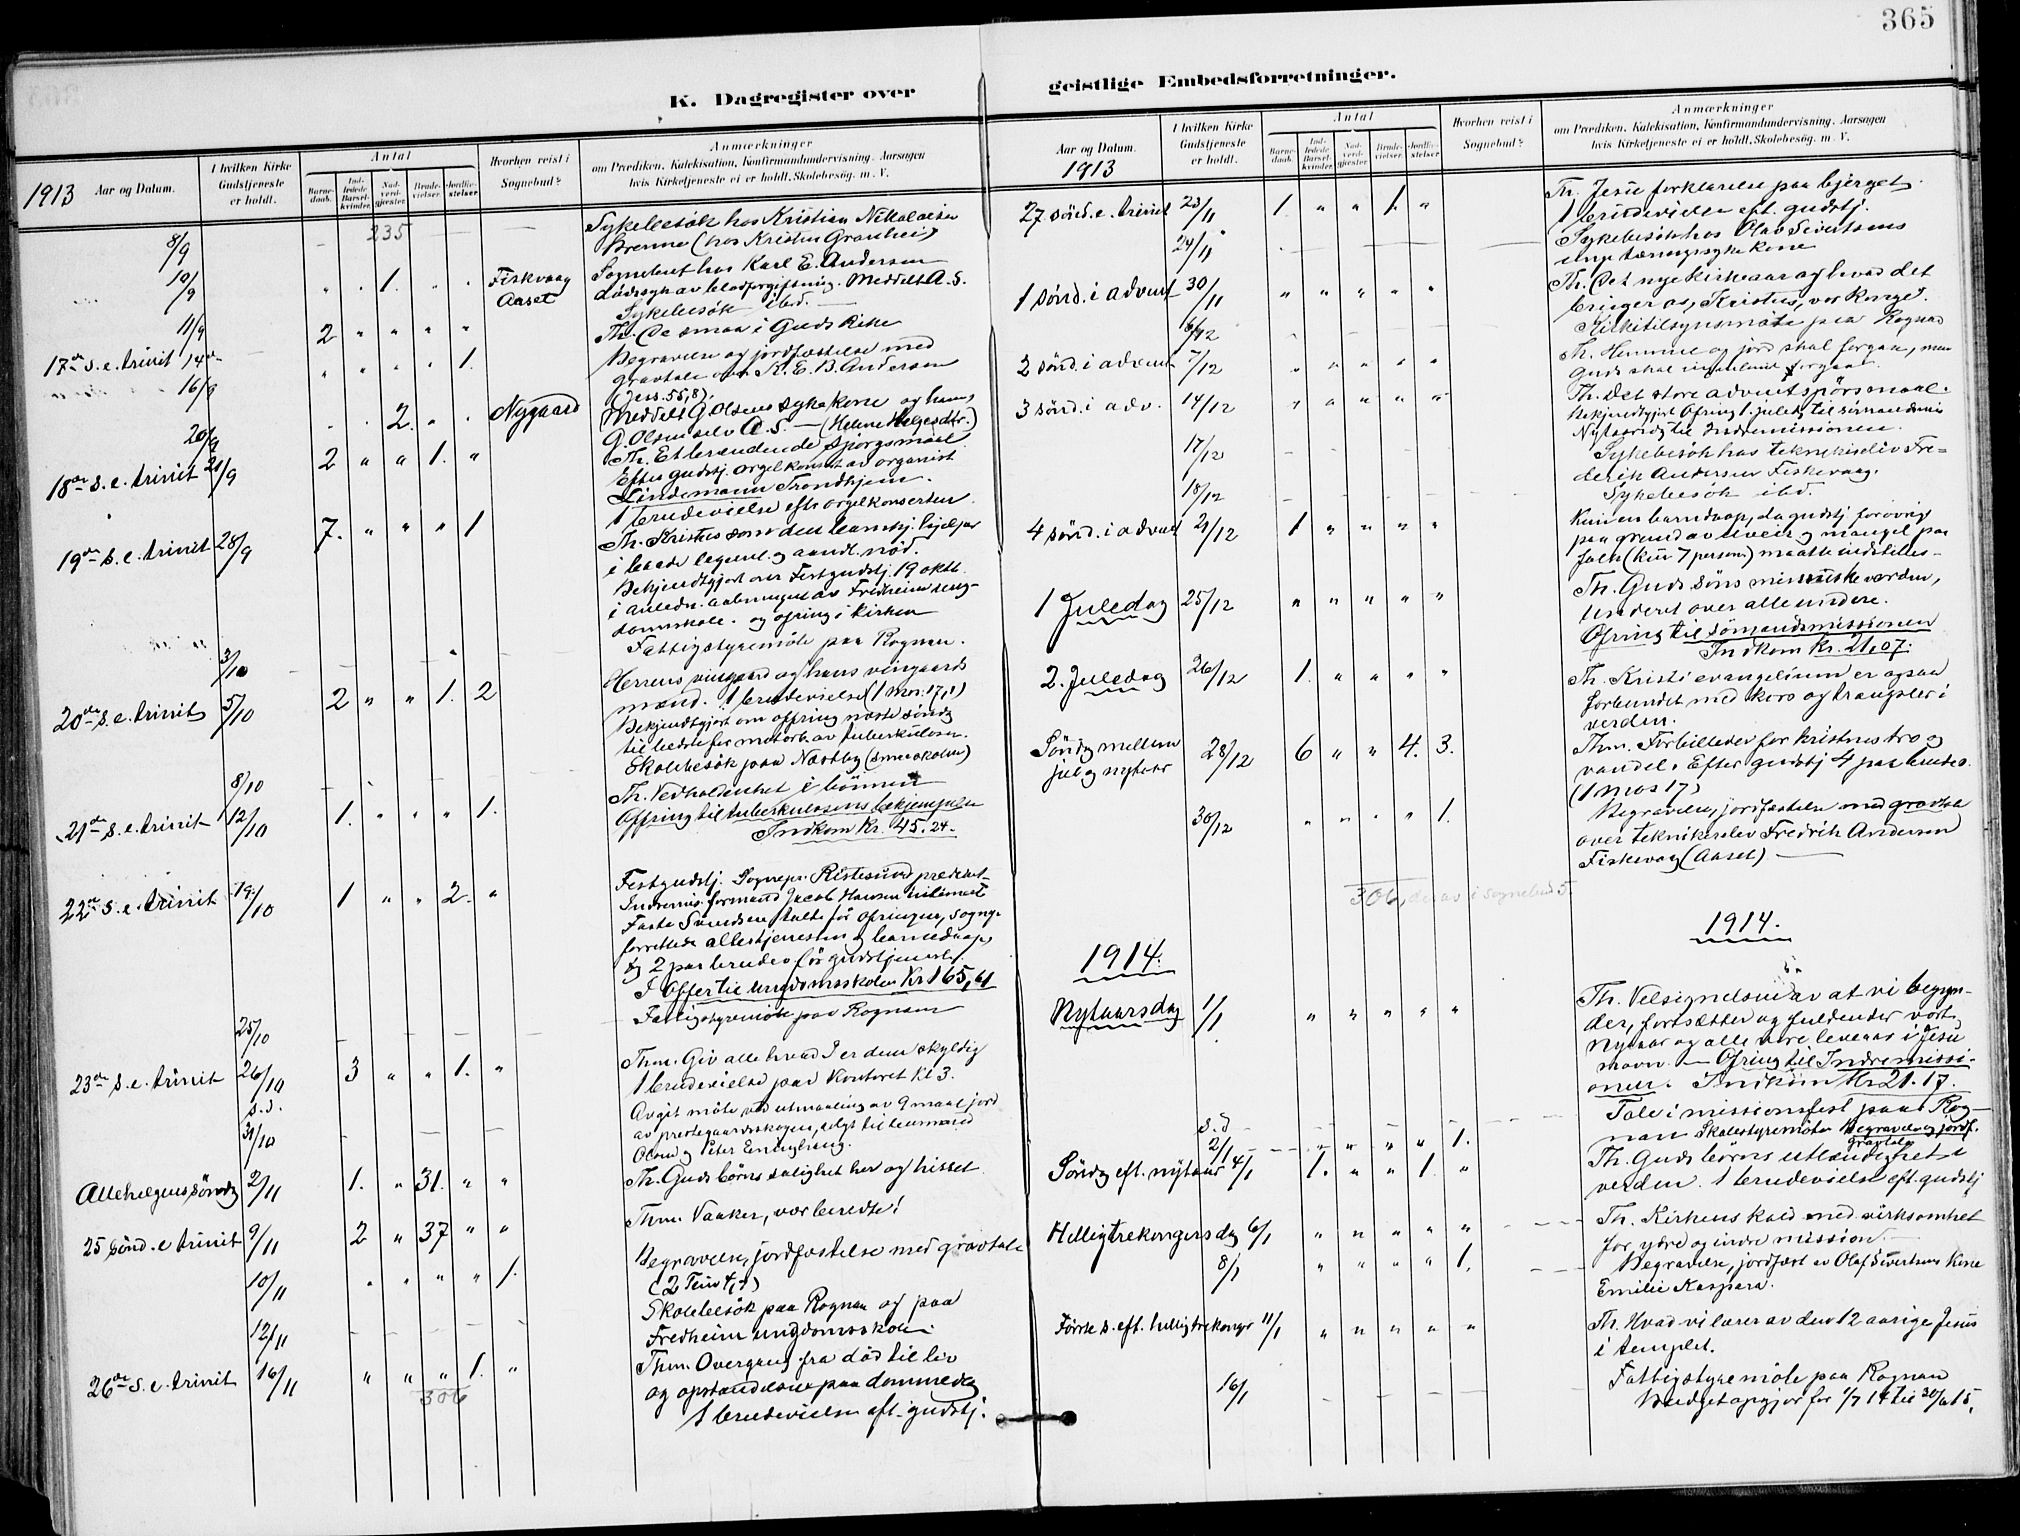 365
K. Dagregister over
geistlige Embedsforretninger.
1913 Aar og Datum.
I hvilken Kirke Gudstjeneste er holdt.
Antal
Barne-daab.
Ind-ledede Barsel-kvinder.
Nad-verd-gjester.
Brude-vielser.
Jordfæ-stelser
Hvorhen reist i Sognebud?
Anmærkninger
om Prædiken, Katekisation, Konfirmandundervisning. Aarsagen
hvis Kirketjeneste ei er holdt. Skolebesög. m. V.
235
8/9 Sykebesök hos Kristian Nikolaisen
Brenne (hos Kristen Granheim)
10/9 " " 1. " " Fiskvaag Aaset
Sognebud hos Karl E. Andersen
dödssyk av blodforgiftning. Meddelt A. S.
11/9 Sykebesök ibd.
17de s. e. trinit 14/9 2 " " " "
Th. De smaa i Guds Rike
16/9 " " " " 1.
Begravelse og jordfæstelse med
gravtale over K. E. B. Andersen
(Jess. 55, 8).
20/9 2. Nygaard
Meddelt G. Olsens syke kone og ham,
G. Olsen selv A. S. — (Helene Helgesdtr.)
18de s. e. trinit 21/9 2 " " 1. "
Th. Et brændende spörgsmaal
Efter gudstj. orgelkonsert av organist
Lindemann Trondhjem.
1 brudevielse efter orgelkonserten.
19de s. e. trinit 28/9 7. " " " 1
Th. Kristus som den barmhj. hjelper
i baade legeml. og aandl. nød.
Bekjendtgjort om Festgudstj. 19 oktb.
i anledn. aabningen av Fredheim ung-
domsskole. og ofring i kirken
3/10 Fattigstyremöte paa Rognan.
20de s. e. trinit 5/10 2 " " 1. 2
Herrens vingaard og hans vingaards
mænd. 1 brudevielse (1 Mos. 17,1)
Bekjendtgjort om offring næste söndag
til bedste for motarb. av tuberkulosen.
8/10 Skolebesök paa Næstby (småskolen)
21de s. e. trinit 12/10 1. " " " 1.
Th. Vedholdenhet i bönnen
Offring til tuberkulosens bekjempelse
Indkom Kr. 45.24.
22de s. e. trinit 19/10 1 " " 2. "
Festgudstj. Sognepr. Ristesund prædiket
Indremis. formand Jacob Hansen
Faste Svendsen talte för ofringen, sognepr.
forrettede alterstjenesten og barnedaap,
og 2 par brudev. för gudstjenesten
I Offer til ungdomsskolen Kr 165,61
25/10 Fattigstyremöte paa Rognan
23de s. e. trinit 26/10 3 " " 1. "
Thm. Giv alle hvad I er dem skyldig
1 brudevielse paa kontoret kl 3.
s. d.
31/10 Avgit möte ved utmaaling av 9 maal jord
av prestegaardsskogen, solgt til lensmand
Olsen og Peter Engeseng.
Allehelgenssöndag 2/11 1. " 31. " "
Th. Guds börns salighet her og hisset
25 sönd. e trinit 9/11 2 " 37 " "
Thm. Vaaker, vær beredte!
10/11 " " " " 1.
Begravelse, jordfæstelse med gravtale
(2 Tim 4,7)
12/11 Skolebesök paa Rognan og paa
Fredheim ungdomsskole.
26de s. e. trinit 16/11 " " " 1. "
306
Thm. Overgang fra död til liv
og opstandelse paa dommedag
1 brudevielse eft. gudstj.
Aar og Datum.
1913
I hvilken Kirke Gudstjeneste er holdt.
Antal
Barne-daab.
Ind-ledede Barsel-kvinder.
Nad-verd-gjester
Brude-vielser.
Jordfæ-stelser
Hvorhen reist i Sognebud?
Anmærkninger
om Prædiken, Katekisation, Konfirmandundervisning. Aarsagen
hvis Kirketjeneste ei er holdt. Skolebesög. m. V.
27 sönd. e. trinit 23/11 1. " " 1. "
Th. Jesu forklarelse paa bjerget.
1 brudevielse eft. gudstj.
24/11 Sykebesök hos Olav Sivertsens
unge tæringssyke kone
1 sönd. i advent 30/11 " " " " "
Th. Det nye kirkeaar og hvad det
bringer os, Kristus, vor Konge.
6/12 Kirketilsynsmöte paa Rognan
2 sönd. i advent 7/12 " " " " "
Th. Himmel og jord skal forgaa, men
Guds skal ingenlunde forgaa.
3 sönd. i adv. 14/12 " " " " "
Th. Det store adventspörsmaal.
Bekjendtgjort Ofring 1. juledag til sömandsmis
Nytaarsdag til Indremissionen.
17/12 Sykebesök hos teknikerelev Fre-
derik Andersen Fiskevaag.
18/12 Sykebesök ibd.
4 sönd. i advent 21/12 1 " " " "
Kun en barnedaap, da gudstj forövrig
paa grund av uveir og mangel paa
folk (kun 7 person) maatte indstilles-
1 Juledag 25/12 " " " " "
Th. Guds söns menneskevorden,
Underet over alle undere.
Ofring til sömandsmissionen
Indkom Kr. 21.07.
2. Juledag 26/12 1. " " " "
Th. Kristi evangelium er ogsaa
forbundet med kors og trængsler i
verden.
Söndg mellem jul og nytaar 28/12 6 " " 4. 3.
Thm. Forbilleder for kristnes tro og
vandel. Efter gudstj 4 par brudev.
(1 Mos 17)
30/12 " " " " 1.
Begravelse, jordfæstelse med gravtale
over teknikerelev Fredrik Andersen
Fiskevaag (Aaset) —
306, derav i sognebud 5.
1914. 1914.
Nytaarsdag 1/1 " " " " "
Th. Velsignelsen av at vi begyn-
der, fortsætter og fuldender vort
Nytaar og alle vore leveaar i Jesu
navn. — Ofring til Indremissi-
onen. Indkom Kr 21.17.
s. d Tale i missionsfest paa Rog-
2/1 " " " " 1.
nan Skolestyremöte Begravelse og jordf.
gravtale
Söndg eft. nytaar 4/1 1. " " 1. "
Th. Guds börns utlændighet i
verden. 1 brudevielse eft. gudstj
Helligtrekongersdag 6/1 " " " " "
Th. Kirkens kald med virksomhet
for ydre og indre mission.
8/1 " " " " 1.
Begravelse, jordfæst av Olaf Sivertsens kone
Emilie Kaspara.
Förste s. eft. helligtrekonger 11/1 " " " " "
Th. Hvad vi lærer av den 12 aarige Jesus
i templet.
16/1 Fattigstyremöte paa Rognan
Budgetopgjör for 1/7 14 til 30/6 15.